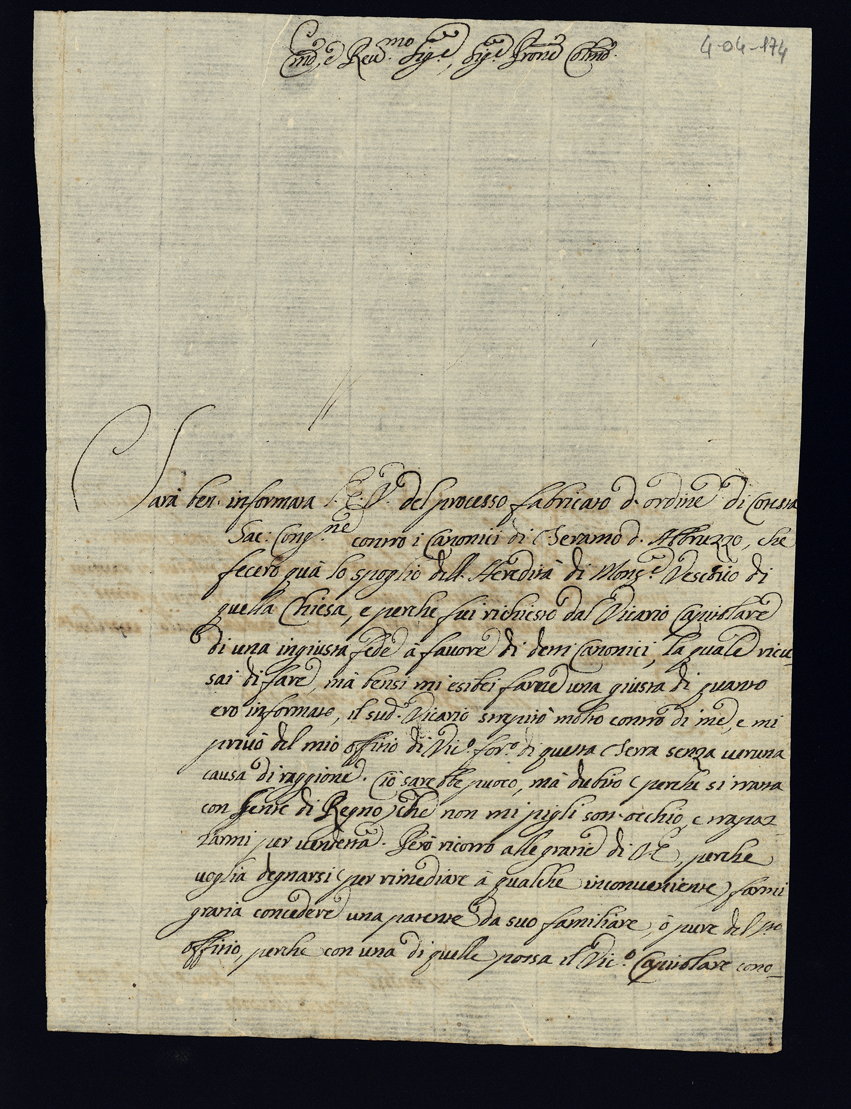 4-04-174
Em.o, e Reu.mo Sig.e, Sig.e Prone Colmo.
Sarà ben informata l'E. V. del processo fabricato d'ordine di Cotesta
Sac: Cong.ne contro i Canonici di Teramo d'Abruzzo, che
fecero quà lo spoglio dell'Heredità di Mons.e Vescouo di
quella Chiesa, e perche fui richiesto dal Vicario Capitolare
di una ingiusta fede à fauore di detti Canonici, la quale ricu-
sai di fare, mà bensì mi esibei farne una giusta di quanto
ero informato, il sud.o Vicario strepitò molto contro di me, e mi
priuò del mio offitio di Vic.o for.o di questa Terra senza veruna
causa di raggione. Ciò sarebbe puoco, mà dubito (perche si tratta
con gente di Regno) che non mi pigli sott'occhio, e strapaz-
zarmi per vendetta. Però ricorro alle gratie di V E, perche
voglia degnarsi (per rimediare à qualche inconueniente) farmi
gratia concedere una patente da suo familiare, ò pure del S.to
offitio, perche con una di quelle possa il Vic.o Capitolare cono-